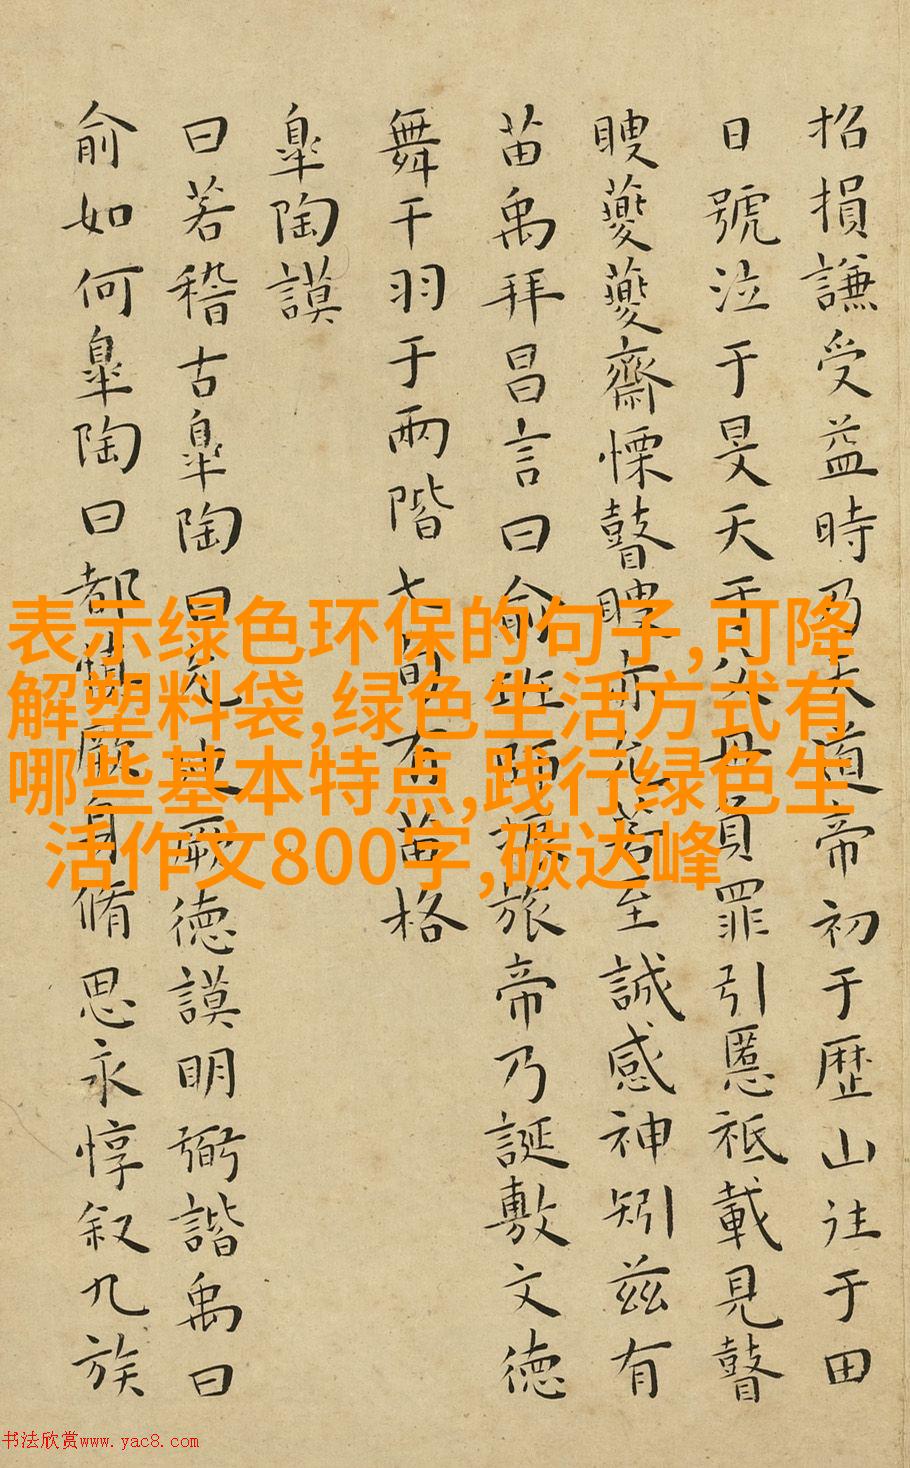 招損謙受益時乃天道帝初于歷山往于田
日號泣于旻天于父母負罪引慝祗載見瞽
瞍夔夔齋慄瞽瞍亦允若至誠感神矧茲有
苗禹拜昌言曰俞班師振旅帝乃誕敷文德
舞干羽于兩階七旬有苗格
皐陶謨
曰若稽古皐陶曰允迪厥德謨明弼諧禹曰
俞如何皐陶曰都慎厥身脩思永惇叙九族
表示绿色环保的句子,可降
解塑料袋,绿色生活方式有
哪些基本特点,践行绿色生
活作文800字,碳达峰
书法欣赏www.yac8.com